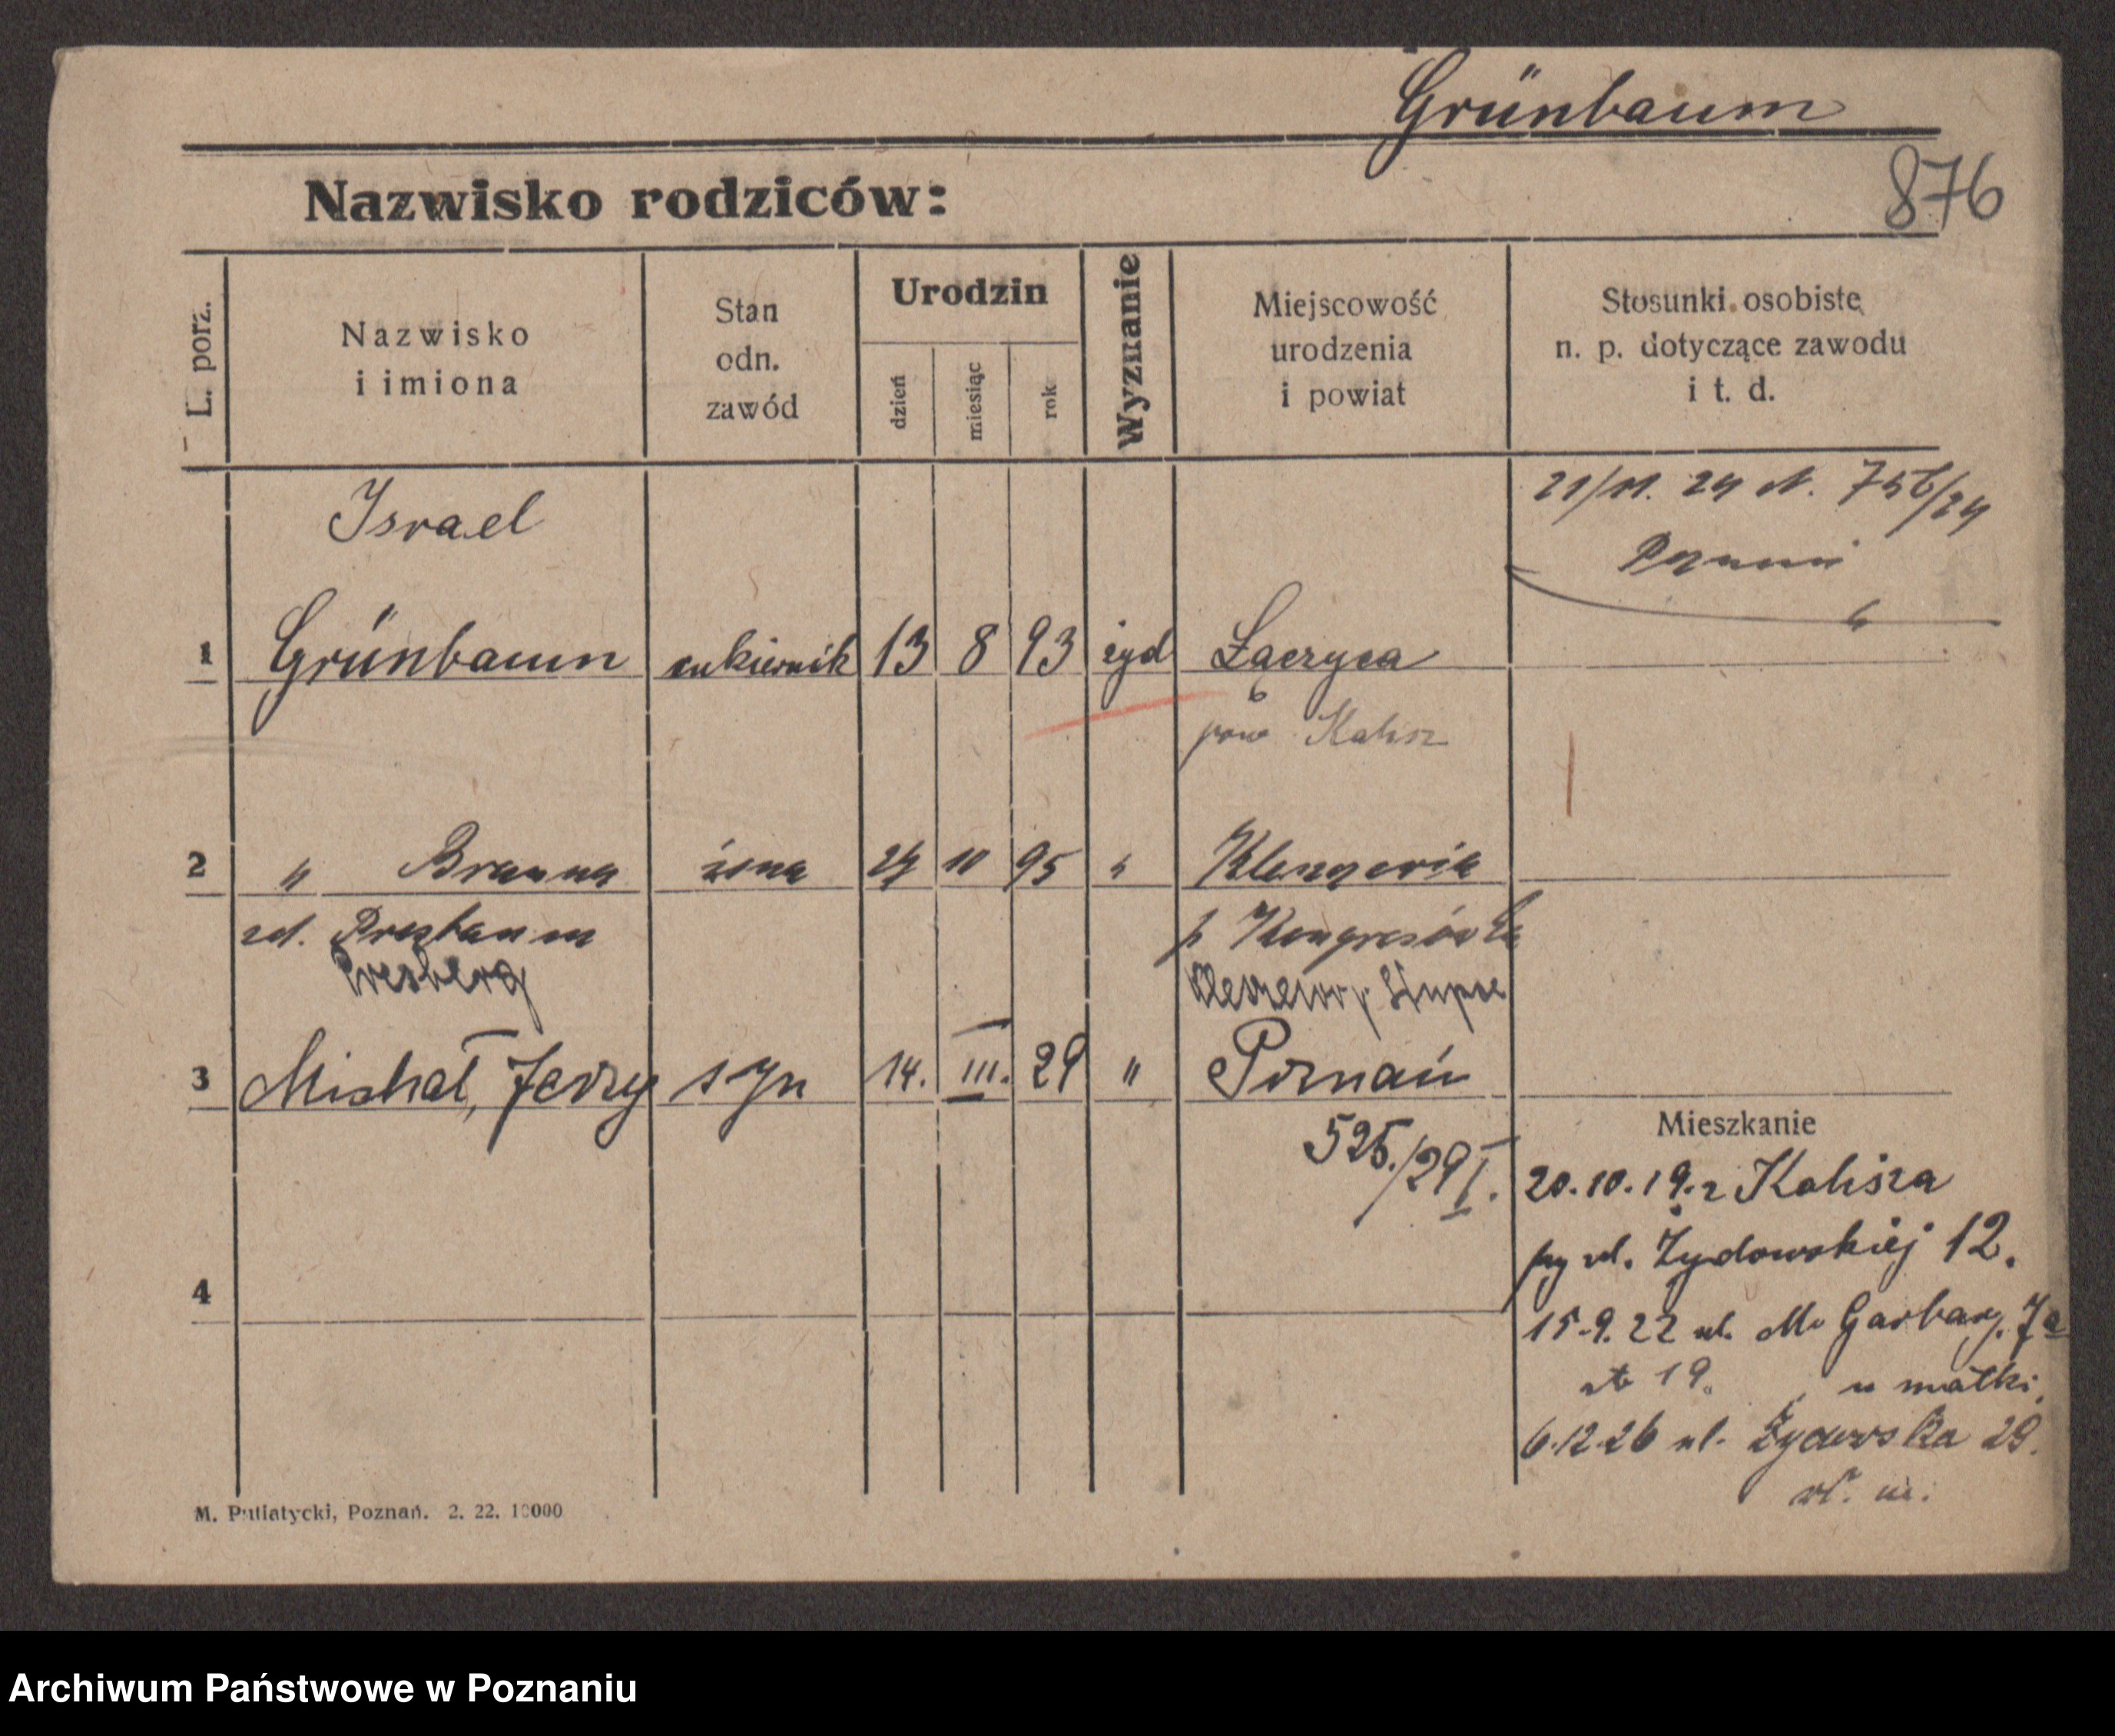 Grünbaum
876
Nazwisko rodziców:
L. porz.
Nazwisko
i imiona
Stan
odn.
zawód
Urodzin
dzień
miesiąc
rok
Wyznanie
Miejscowość
urodzenia
i powiat
Stosunki osobiste
n. p. dotyczące zawodu
i t. d.
21/11. 24 N. 756/24
Israel
1 Grünbaum cukiernik 13 8 93 żyd Łączyca
pow Kalisz
2 " Branna żona 24 10 95 "
p Kongresówka
Presberg
3 Michał, Jerzy syn 14. III. 29 " Poznań
525./29 I.
Mieszkanie
20.10.19. z Kalisza
przy ul. Żydowskiej 12.
4
15.9.22 ul. M. Garbary. 7a
19. u matki
6.12.26 ul. Żydowska 29.
M. Putiatycki, Poznań. 2. 22. 10000
Archiwum Państwowe w Poznaniu